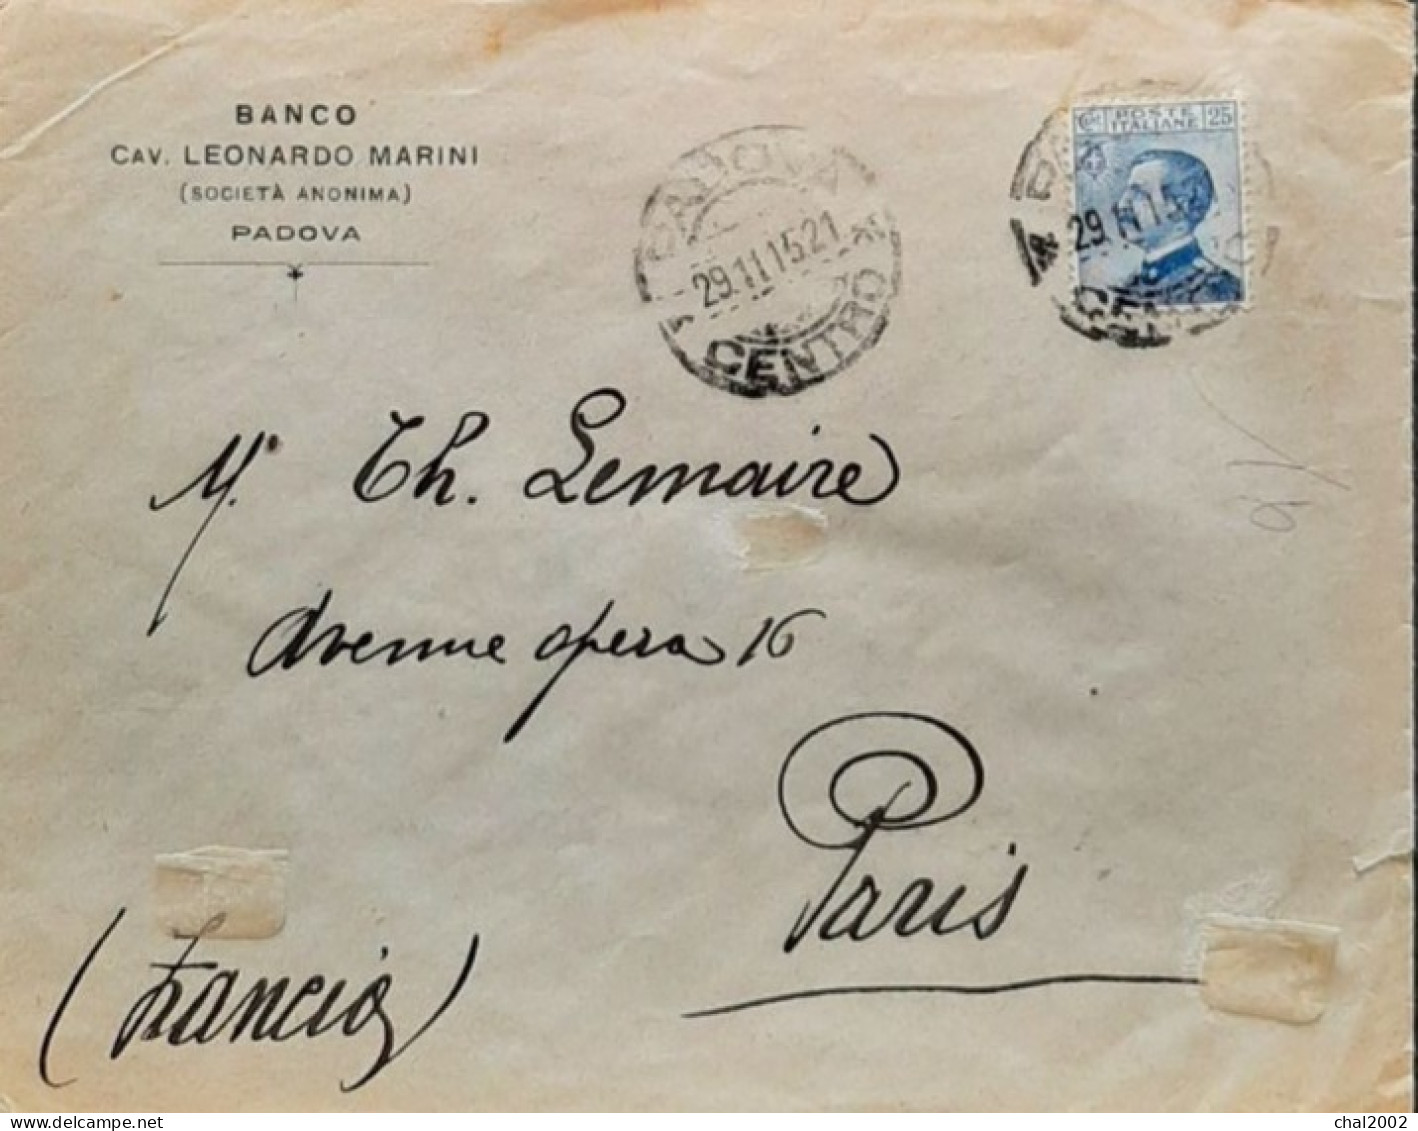 BANCO
CAV. LEONARDO MARINI
(SOCIETÀ ANONIMA)
PADOVA
PADOVA
29.11.15.21
CENTRO
Cent POSTE ITALIANE 25
29.11.15.21
CENTRO
Mr. Th. Lemaire
Avenue opera 16
Paris
(Francia)
DELCAMPE.NET
chal2002